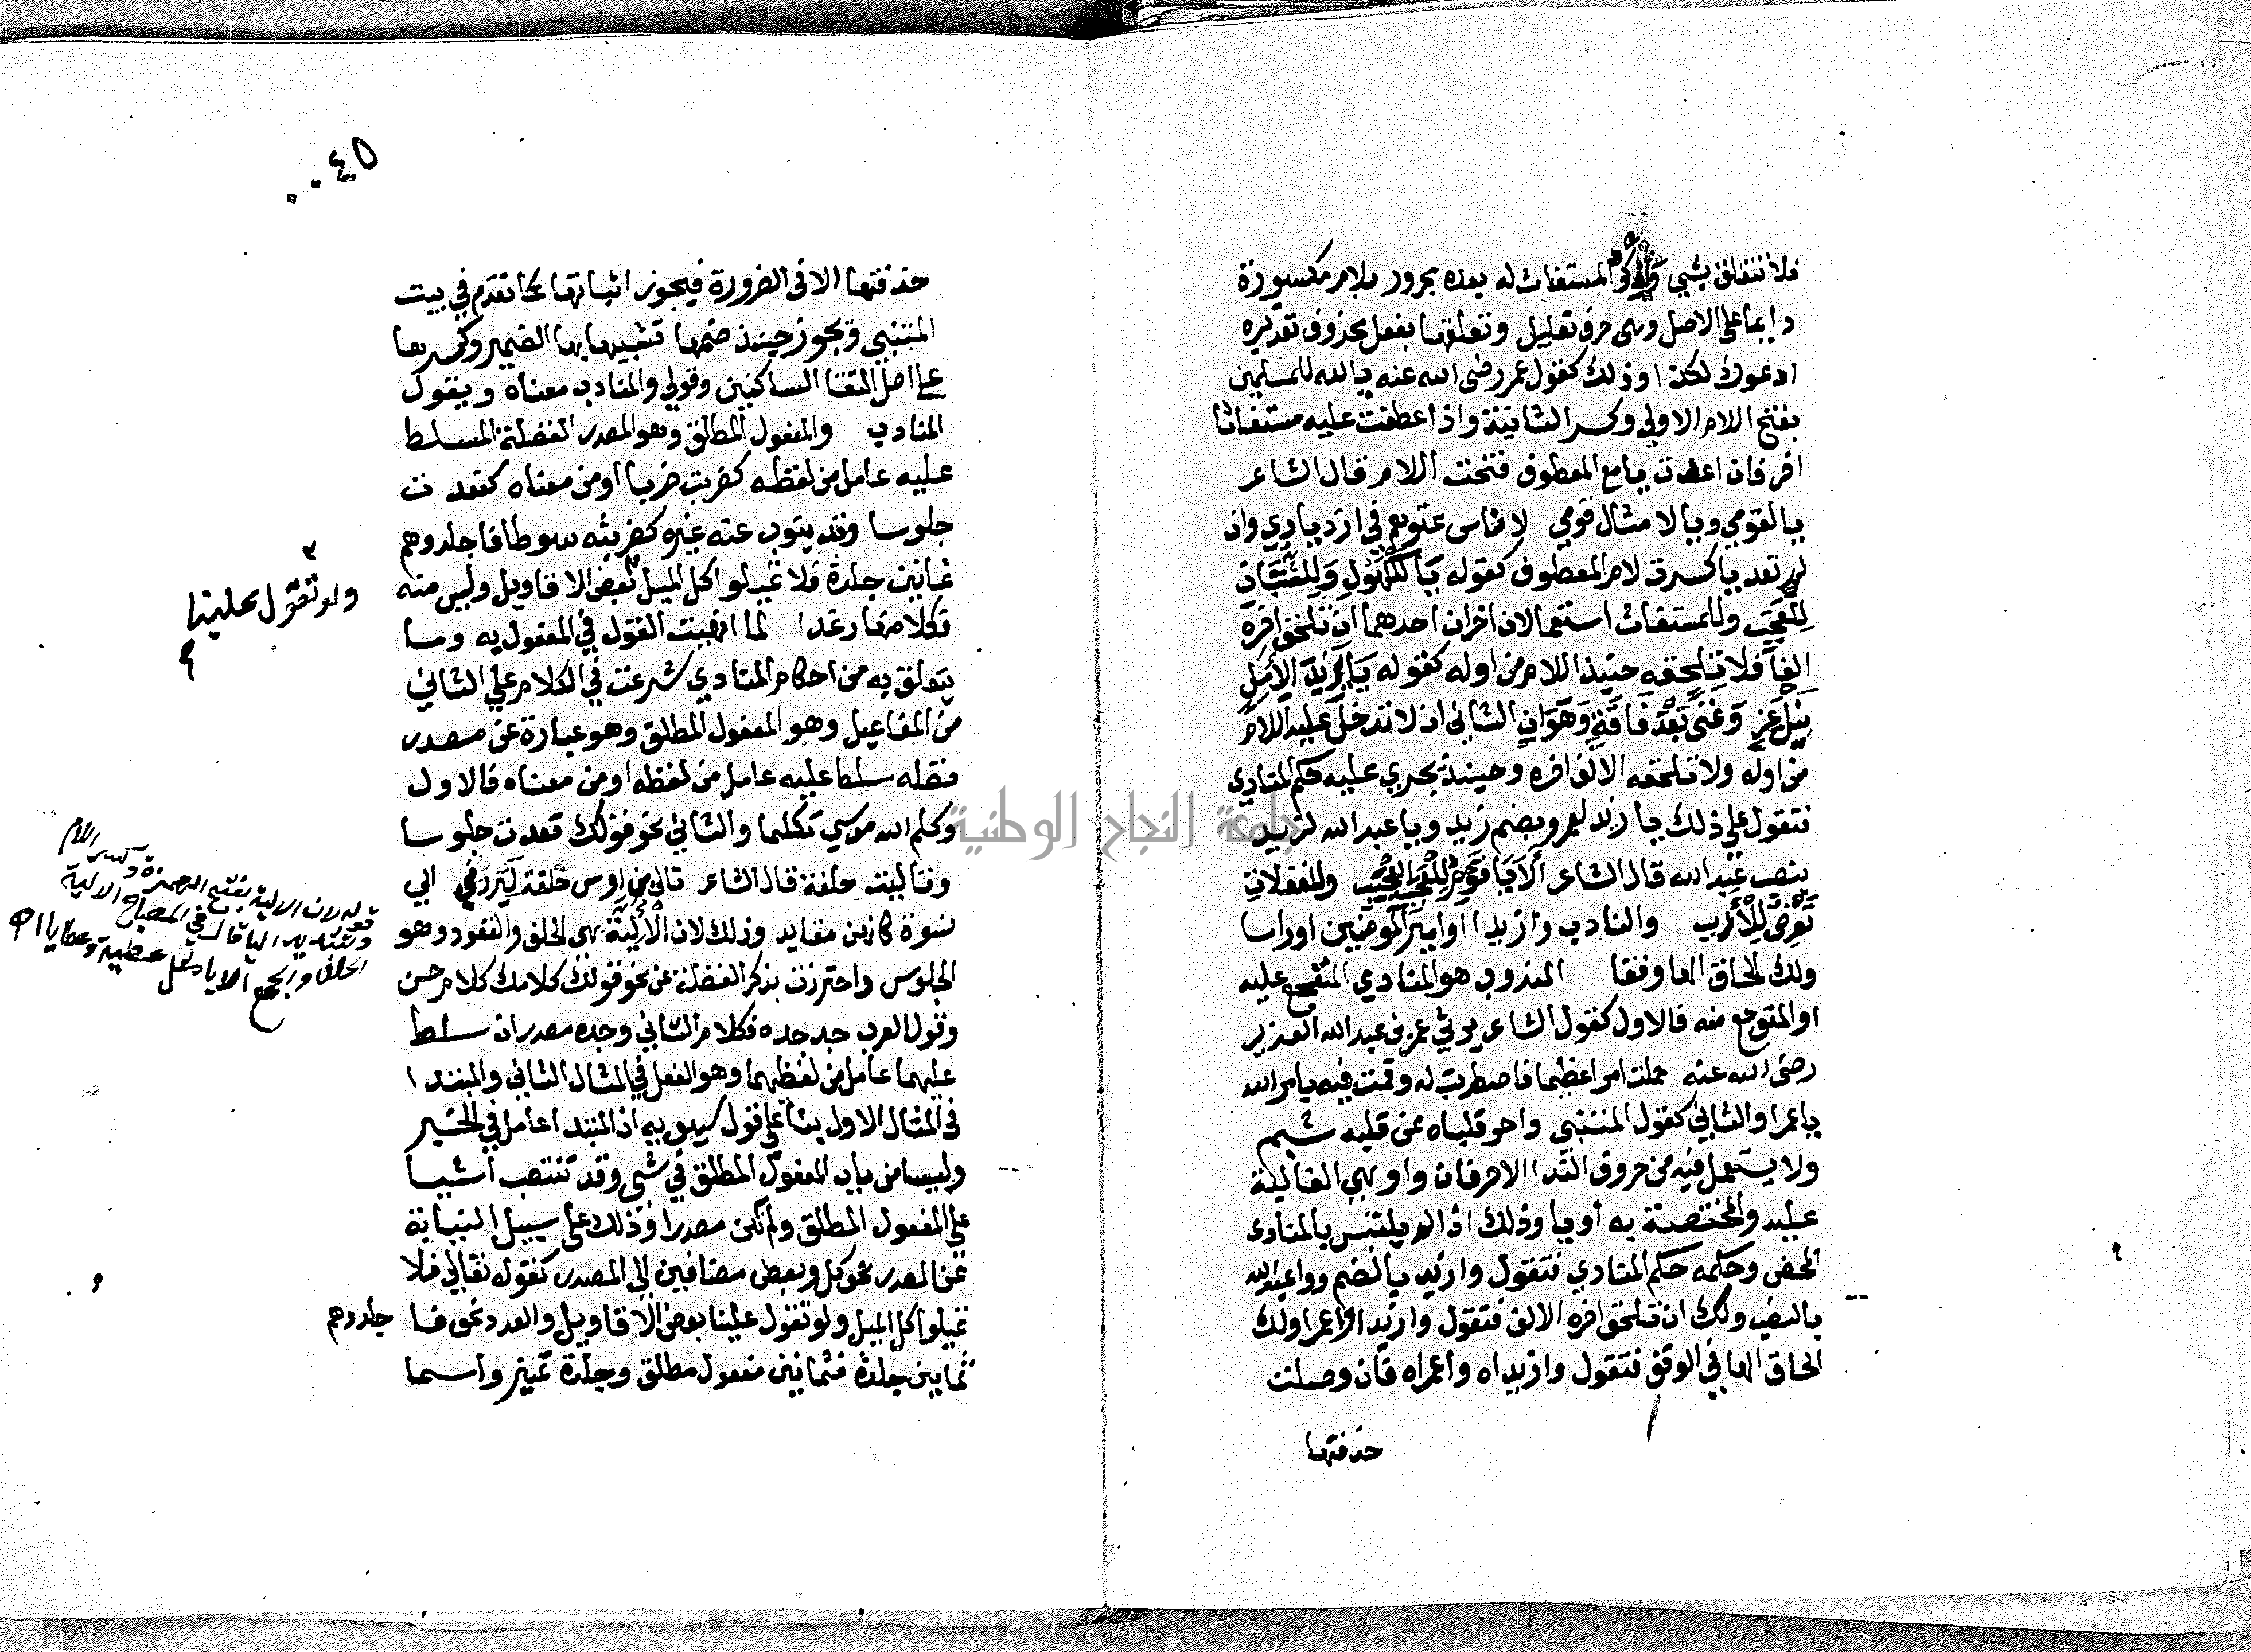 فلا تتعلق بشيء وذكر المستغاث له بعده مجرور بلام مكسورة
دايما على الاصل وهي حرف تعليل وتعلقها بفعل محذوف تقديره
ادعوك لكذا وذلك كقول عمر رضى الله عنه يا لله للمسلمين
بفتح اللام الاولى وكسر الثانية واذا عطفت عليه مستغاثا
اخر فان اعدت يا مع المعطوف فتحت اللام قال الشاعر
يا لقومي ويا لامثال قومي لاناس عتوهم في ازدياد وان
لم تعد يا كسرت لام المعطوف كقوله يَا لَلْكُهُولِ وَلِلشُّبَّانِ
لِلْعَجَبِ وللمستغاث استعمالان اخران احدهما ان تلحق اخره
الفا فلا تلحقه حينئذ اللام من اوله كقوله يَا يَزِيدَا لِآمِلٍ
نَيْلَ عِزٍّ وَغِنًى بَعْدَ فَاقَةٍ وَهَوَانِ الثاني ان لا تدخل عليه اللام
من اوله ولا تلحقه الالف اخره وحينئذ يجري عليه حكم المنادى
فتقول على ذلك يا زيد لعمرو بضم زيد ويا عبد الله لزيد
بنصب عبد الله قال الشاعر أَلَا يَا قَوْمِ لِلْعَجَبِ الْعَجِيبِ وللغفلات
تَعْرِضُ لِلْأَرِيبِ والنادب وا زيدا وا امير المومنين وا راسا
ولك الحاق الها وقفا المندوب هو المنادي المتفجع عليه
او المتوجع منه فالاول كقول الشاعر يرثي عمر بن عبد العزيز
رضى الله عنه حملت امرا عظيما فاصطبرت له وقمت فيه بامر الله
يا عمرا والثاني كقول المتنبي واحر قلباه ممن قلبه شبم
ولا يستعمل فيه من حروف الندا الا حرفان وا وهي الغالبة
عليه والمختصة به أو يا وذلك اذا لم يلتبس بالمنادى
المحض وحكمه حكم المنادي فتقول وا زيد بالضم ووا عبد الله
بالنصب ولك ان تلحق اخره الالف فتقول وا زيدا وا عمرا ولك
الحاق الها في الوقف فتقول وا زيداه وا عمراه فان وصلت
حذفتها
٤٥
حذفتها الا في الضرورة فيجوز اثباتها كما تقدم في بيت
المتنبي ويجوز حينئذ ضمها تشبيها بها الضمير وكسرها
على اصل التقا الساكنين وقولي والنادب معناه ويقول
النادب والمفعول المطلق وهو المصدر الفضلة المسلط
عليه عامل من لفظه كضربت ضربا او من معناه كقعدت
جلوسا وقد ينوب عنه غيره كضربته سوطا فاجلدوهم
ثمانين جلدة فلا تميلوا كل الميل بعض الاقاويل وليس منه
ولو تقول علينا
فكلا منها رغدا لما انهيت القول في المفعول به وما
يتعلق به من احكام المنادي شرعت في الكلام على الثاني
من المفاعيل وهو المفعول المطلق وهو عبارة عن مصدر
فضله سلط عليه عامل من لفظه او من معناه فالاول
وكلم الله موسي تكليما والثاني نحو قولك قعدت جلوسا
وتاليت حلفة قال الشاعر تالى بن اوس حلفة ليردني الي
نسوة كانهن مفايد وذلك لان الألية هي الحلف والقعود وهو
الجلوس واحترزت بذكر الفضلة عن نحو قولك كلامك كلام حسن
وقول العرب جد جده فكلام الثاني وجده مصدران سلط
عليهما عامل من لفظهما وهو الفعل في المثال الثاني والمبتدا
في المثال الاول بناء على قول سيبويه ان المبتدا عامل في الخبر
وليسا من باب المفعول المطلق في شى وقد تنتصب أشيا
على المفعول المطلق ولم تكن مصدرا وذلك على سبيل النيابة
عن المصدر نحو كل وبعض مضافين الي المصدر كقوله تعالي فلا
تميلوا كل الميل ولو تقول علينا بعض الاقاويل والعدد نحو فا جلدوهم
ثمانين جلدة فثمانين مفعول مطلق وجلدة تميز واسما
قوله لان الالية بفتح الهمزة وكسر اللام
وتشديد اليا قال في المصباح الالية
الحلف والجمع الايا مثل عطية وعطايا اه
جامعة النجاح الوطنية